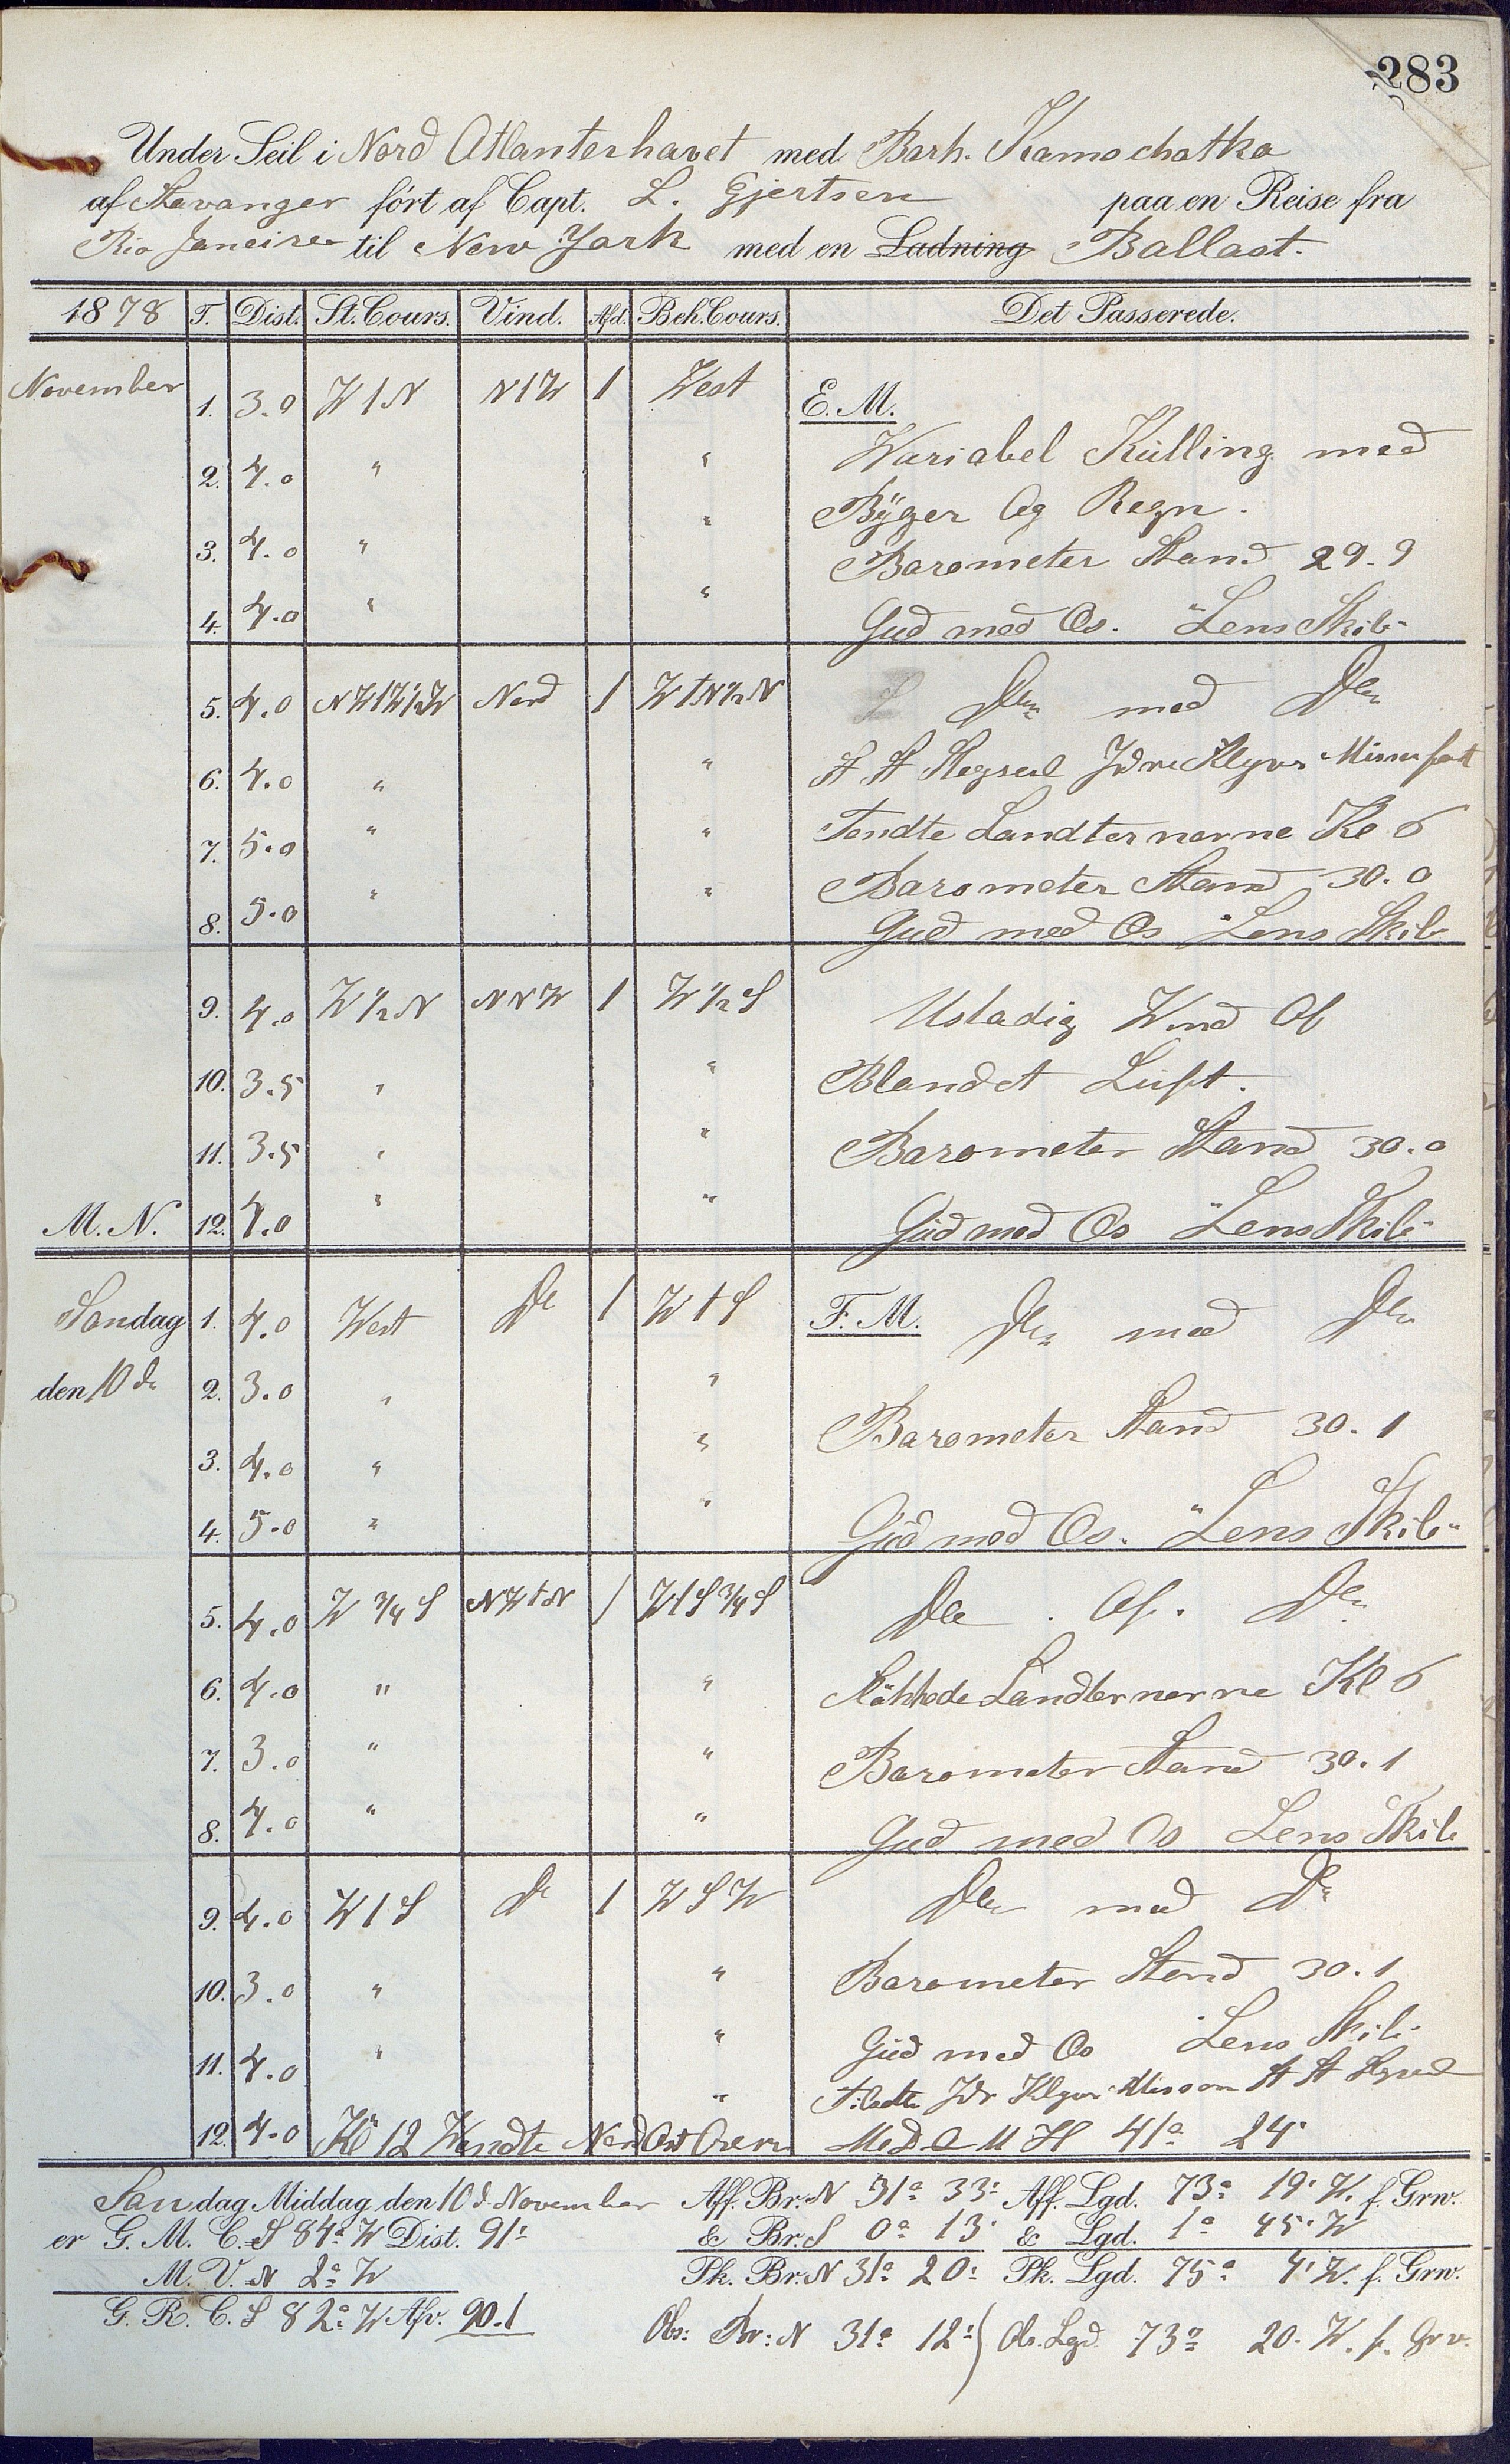 283
Under Seil i Nord Atlanterhavet med Bark. Kamschatka
af Stavanger ført af Capt. L. Gjertsen paa en Reise fra
Rio Janeiro til New York med en Ladning Ballast.
1878 T. Dist. St. Cours. Vind. Afd. Beh. Cours. Det Passerede.
November 1. 3.0 W t N N t W 1 West E. M.
2. 4.0 " " Wariabel Kulling med
Byger Og Regn.
3. 4.0 " " Barometer Stand 29.9
4. 4.0 " " Gud med Os. "Lens Skib"
5. 4.0 NW t W ½ W Nord 1 W t N ½ N Do med Do
6. 4.0 " " St St Stagseil Jdre Klyver Misan fast
7. 5.0 " " Tendte Landternerne Kl 6
Barometer Stand 30.0
8. 5.0 " " Gud med Os "Lens Skib
9. 4.0 W ½ N NNW 1 W ½ S Ustadig Wind Og
10. 3.5 " " Blandet Luft.
11. 3.5 " " Barometer Stand 30.0
M. N. 12. 4.0 " " Gud med Os "Lens Skib"
Søndag 1. 4.0 West Do 1 W t S F. M. Do med Do
den 10 d. 2. 3.0 " "
Barometer Stand 30.1
3. 4.0 " "
4. 5.0 " " Gud med Os. "Lens Skib"
5. 4.0 W ¾ S NW t N 1 W t S ¾ S Do. Og. Do
6. 4.0 " " Slökkede Landternerne Kl 6
7. 3.0 " " Barometer Stand 30.1
8. 4.0 " " Gud med Os Lens Skib
9. 4.0 W t S Do 1 W S W Do med Do
10. 3.0 " " Barometer Stand 30.1
11. 4.0 " " Gud med Os Lens Skib
" Tilsatte Jdr Klyver Misan St St Stagseil
12. 4.0 Kl 12 Vendte Nord Ost Over M e D a U H 41° 24'
Søndag Middag den 10 d. November Aff. Br. N 31° 33' Aff. Lgd. 73° 19' W. f. Grw.
er G. M. C. S 84° W Dist. 91' & Br. S 0° 13' & Lgd. 1° 45' W
M. V. N 2° W Pk. Br. N 31° 20' Pk. Lgd. 75° 4' W. f. Grw.
G. R. C. S 82° W Afv. 90.1 Obs: Br: N 31° 12' Ob. Lgd. 73° 20. W. f. Grw.